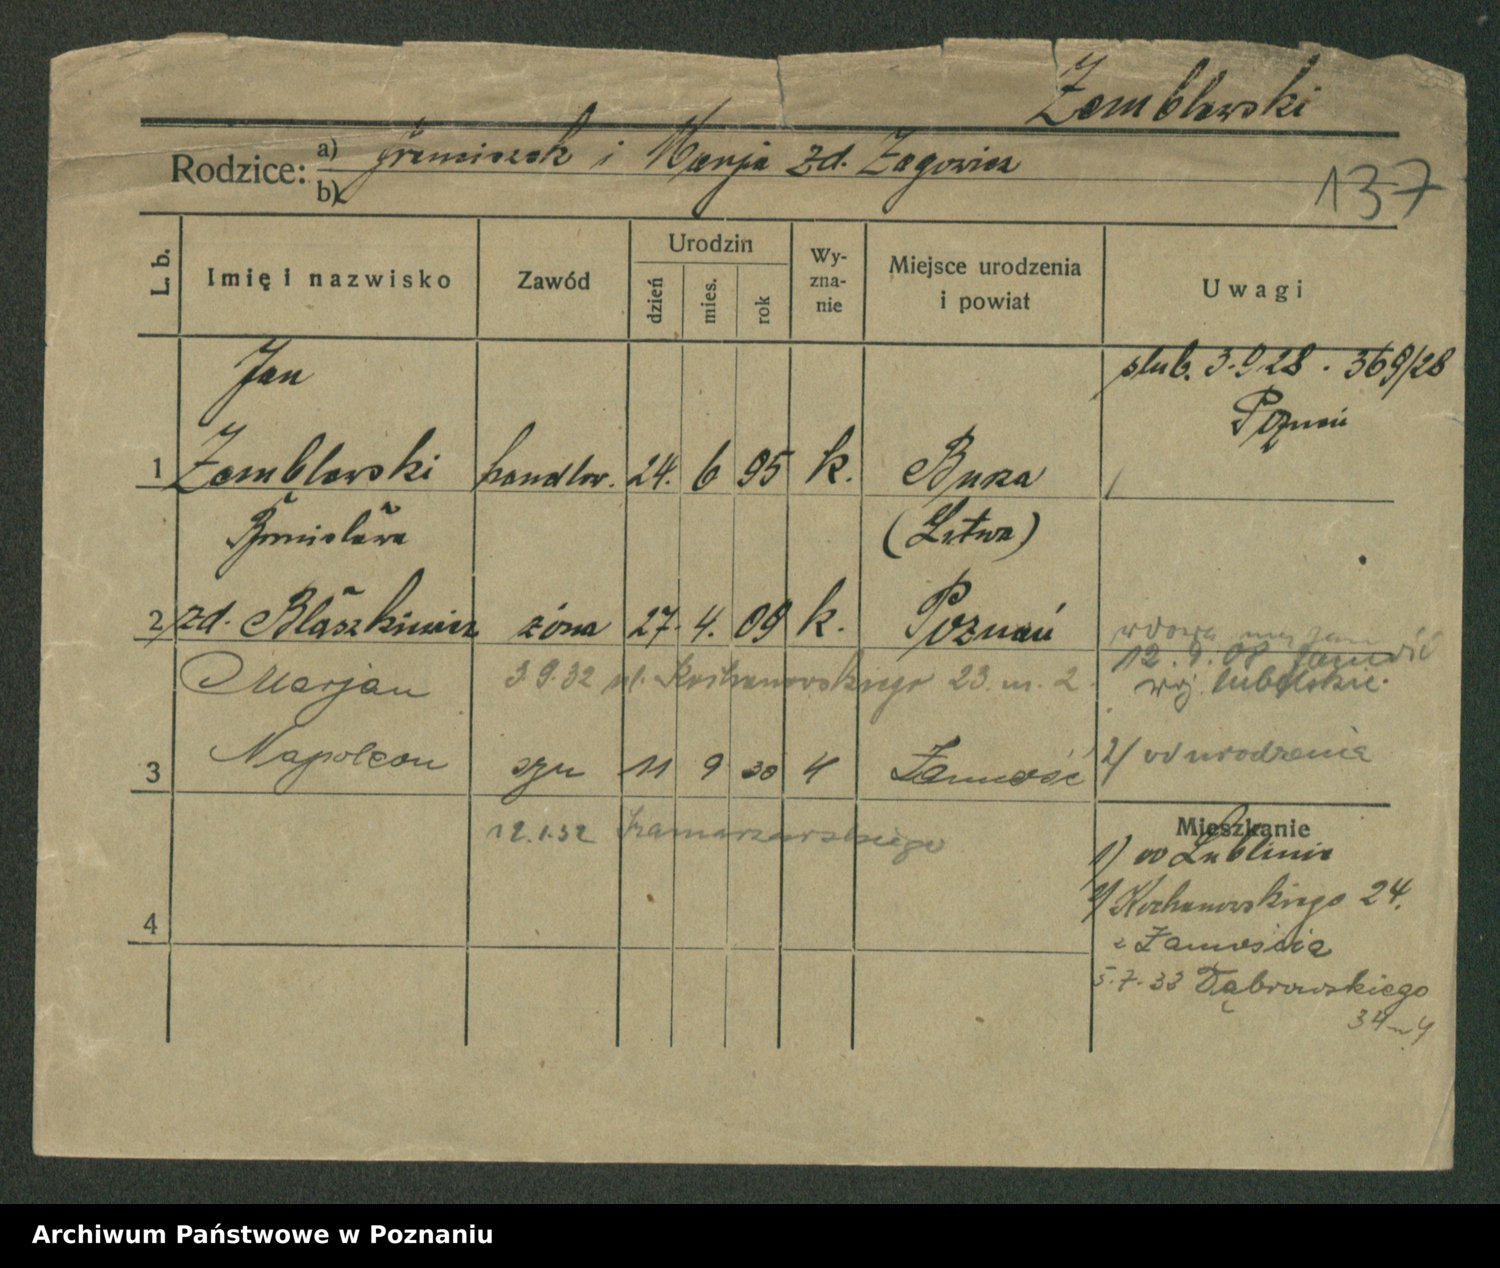 Zemblewski
Rodzice: a) Franciszek i Marja zd. Zagowicz
b)
137
L. b.
Imię i nazwisko
Zawód
Urodzin
dzień
mies.
rok
Wy-
zna-
nie
Miejsce urodzenia
i powiat
Uwagi
Jan
ślub. 3.9.28. 369/28
Poznań
1 Zemblewski handlow. 24. 6 95 k.
(Litwa)
Bronisława
2 zd. Błaszkiewicz żona 27. 4. 09 k. Poznań
12.9.08
woj. lubelskie.
Marjan 3.9.32 ul. Kochanowskiego 23 m. 2
Napoleon
3 syn 11 9 30 Zamość 2/ od urodzenia
12.1.32
Mieszkanie
1) od Lublinie
2/ Kochanowskiego 24.
z Zamościa
5.7.33 Dąbrowskiego
34 m 4
4
Archiwum Państwowe w Poznaniu